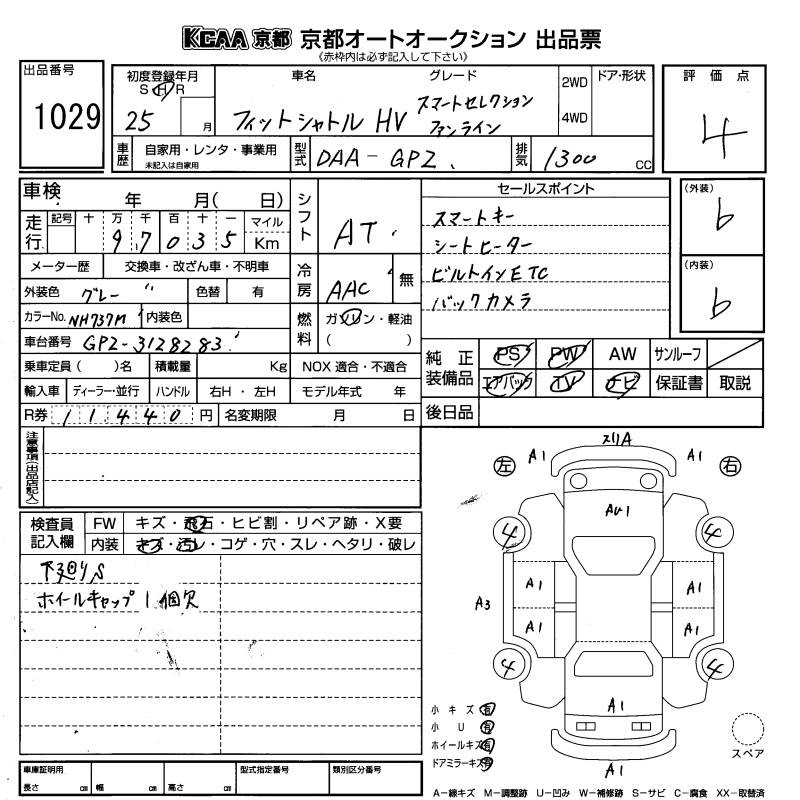 KCAA 京都 京都オートオークション 出品票
《赤枠内は必ず記入して下さい》
出品番号
1029
初度登録年月
S H R
25 月
車名 グレード
フィットシャトル HV スマートセレクション
ファンライン
2WD
4WD
ドア・形状
評価点
4
車歴 自家用・レンタ・事業用
未記入は自家用
型式 DAA-GP2
排気 1300 cc
車検 年 月( 日)
走行 記号 十 万 千 百 十 一 マイル
9 7 0 3 5 Km
シフト AT
メーター歴 交換車・改ざん車・不明車
外装色 グレー 色替 有
冷房 AAC 無
カラーNo. NH737M 内装色
燃料 ガソリン・軽油
( )
車台番号 GP2-3128283
乗車定員( )名 積載量 Kg NOX 適合・不適合
輸入車 ディーラー・並行 ハンドル 右H・左H モデル年式 年
R券 11440 円 名変期限 月 日
セールスポイント
スマートキー
シートヒーター
ビルトインETC
バックカメラ
(外装)
b
(内装)
b
純正装備品 PS PW AW サンルーフ
エアバック TV ナビ 保証書 取説
後日品
注意事項(出品店記入)
検査員記入欄 FW キズ・飛石・ヒビ割・リペア跡・X要
内装 キズ・汚レ・コゲ・穴・スレ・ヘタリ・破レ
下廻りS
ホイールキャップ1個欠
スリA
A1 A1
左 右
AU1
4 4
A1 A1
A3
A1 A1
4 4
A1
小キズ 有
小U 有
ホイールキズ 有
ドアミラーキズ 有
スペア
A1
車庫証明用
長さ cm 幅 cm 高さ cm
型式指定番号 類別区分番号
A-線キズ M-調整跡 U-凹み W-補修跡 S-サビ C-腐食 XX-取替済